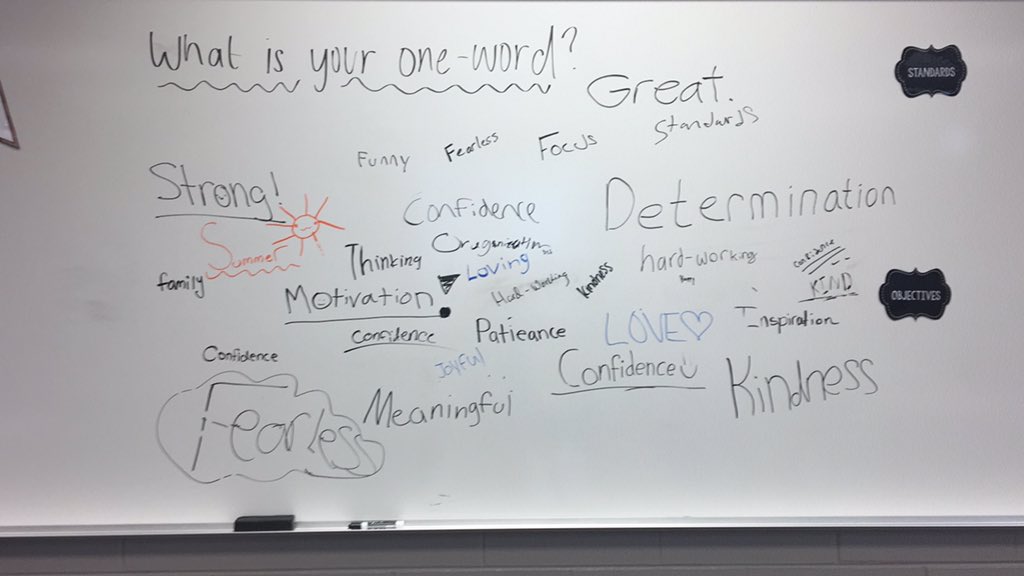 What is your one-word?
Great.
STANDARDS
Standards
Funny
Fearless
Focus
Strong!
Confidence
Determination
Summer
Thinking
Oruganization
Loving
hard-working
Confidence
family
Motivation!
Hard-Working
Kindness
KIND
OBJECTIVES
Confidence
Patieance
LOVE♡
Inspiration
Confidence
Joyful
Confidence
Kindness
Fearless
Meaningful